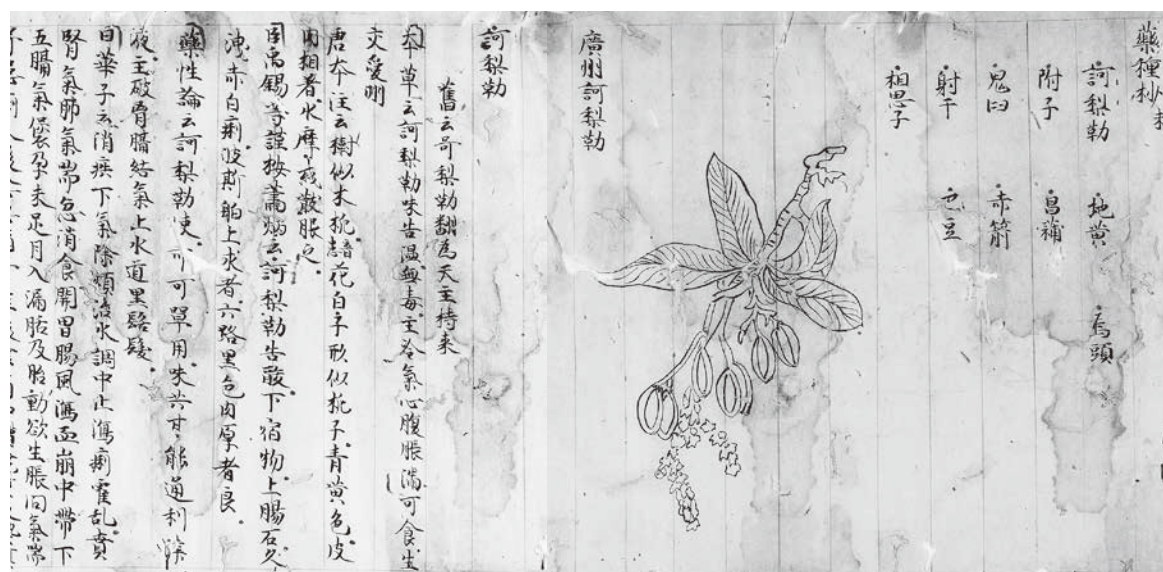 藥種抄
訶梨勒 地黃 烏頭
附子 昌蒲
鬼臼 赤箭
射干 巴豆
相思子
廣州訶梨勒
訶梨勒
舊云呵梨勒翻為天主持来
本草云訶梨勒味苦温無毒主冷氣心腹脹滿可食生
交愛州
唐本注云樹似木梡花白子形似梔子青黄色皮
肉相著水摩或散服之
臣禹錫等謹按蕭炳云訶梨勒苦酸下宿物止腸石久
洩赤白痢波斯舶上来者六路黒色肉厚者良
藥性論云訶梨勒使亦可單用味苦甘能通利津
液主破胷膈結氣止水道黒髭髮
日華子云消痰下氣除煩治水調中止瀉痢霍乱賁
腎氣肺氣喘急消食開胃腸風瀉血崩中帶下
五膈氣懐孕未足月人漏胎及胎動欲生脹悶氣喘